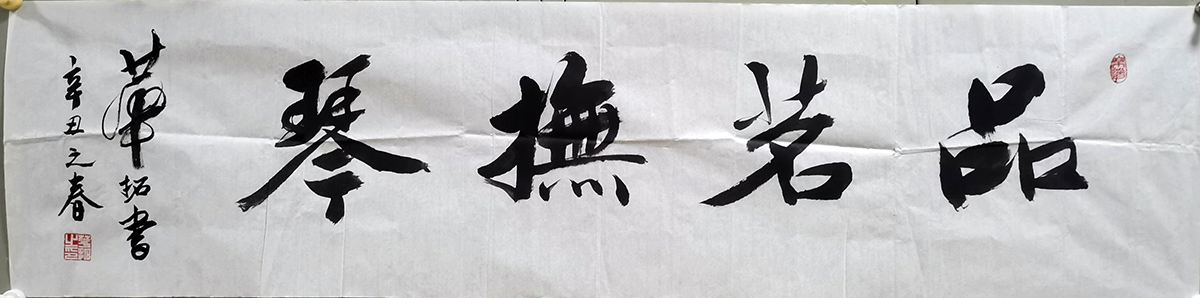 品茗撫琴
拓書
辛丑之春